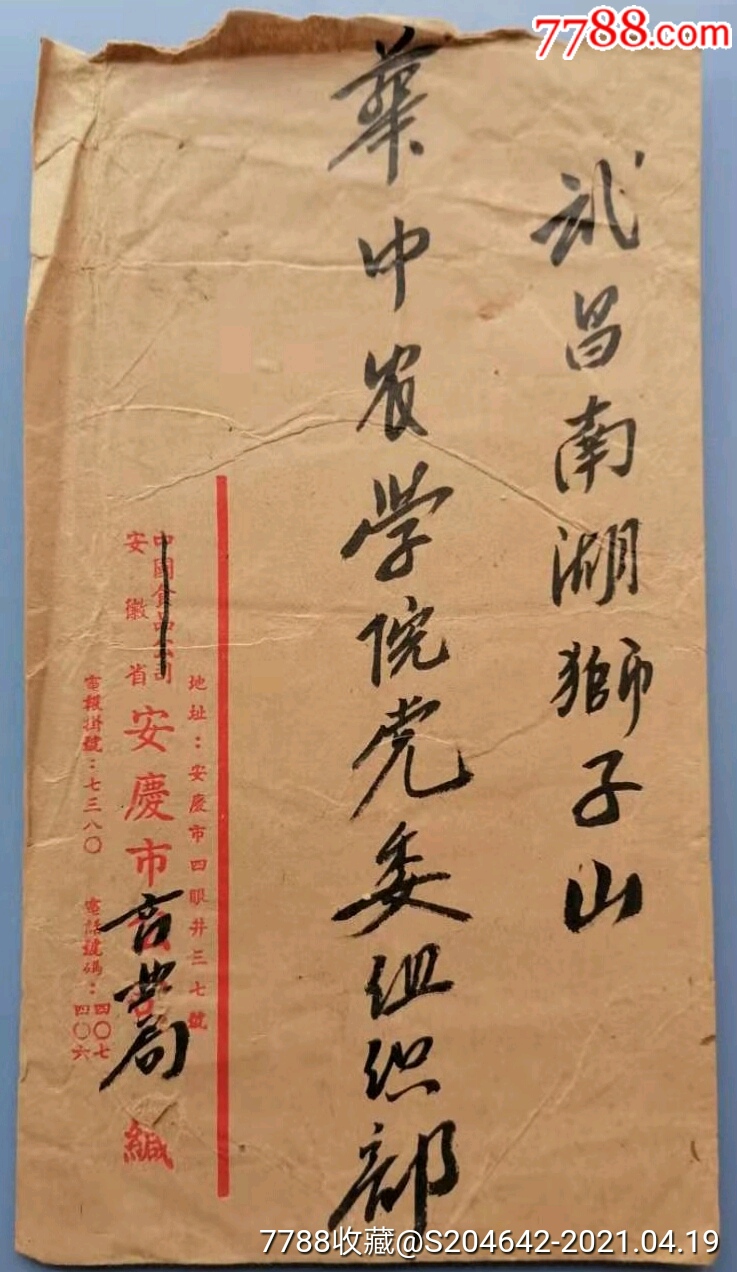 7788.com
武昌南湖獅子山
華中农学院党委组织部
地址：安慶市四眼井三七號
中國食品公司
安徽省安慶市商業局緘
電報掛號：七三八〇 電話號碼：四〇七 四〇六
7788收藏@S204642-2021.04.19